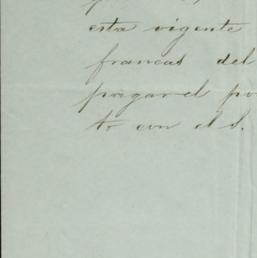 esta vigente
francas del
pagar el po
to con el S.